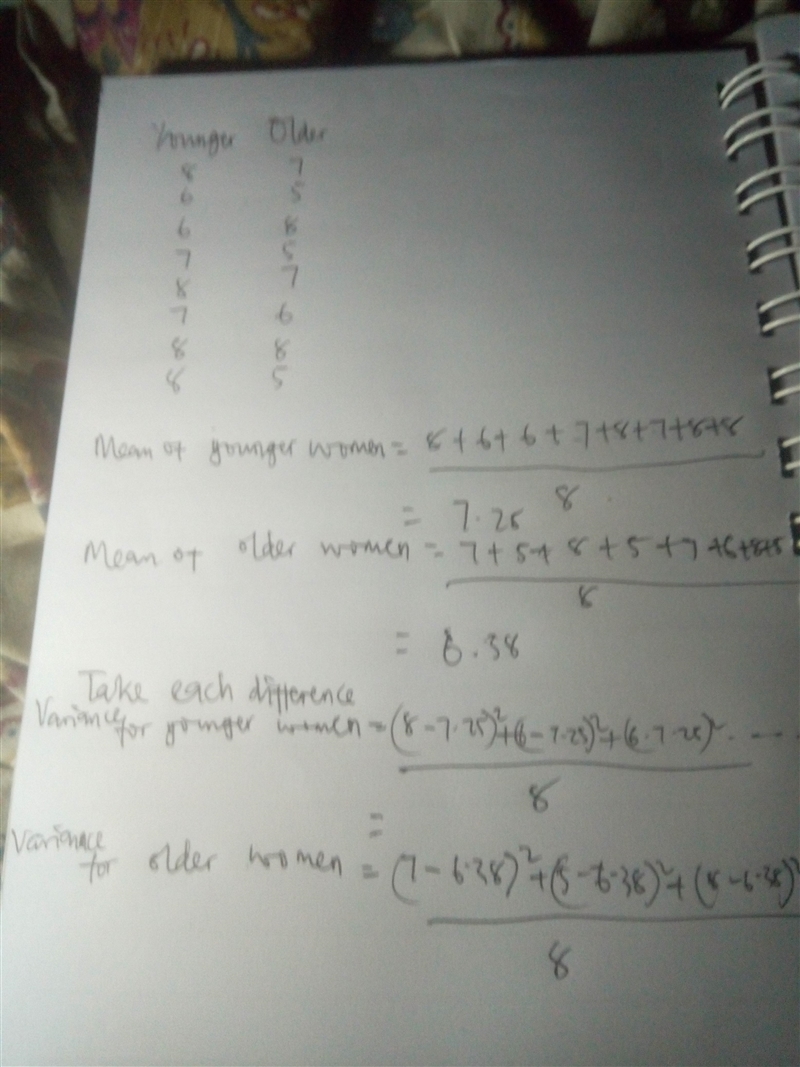 Younger Older
8 7
6 5
6 8
7 5
8 7
7 6
8 8
8 5
Mean of younger women = 8+6+6+7+8+7+8+8
8
= 7.25
Mean of older women = 7+5+8+5+7+6+8+5
8
= 6.38
Take each difference
Variance for younger women = (8-7.25)²+(6-7.25)²+(6-7.25)² . ---
8
=
Variance for older women = (7-6.38)²+(5-6.38)²+(8-6.38)²
8